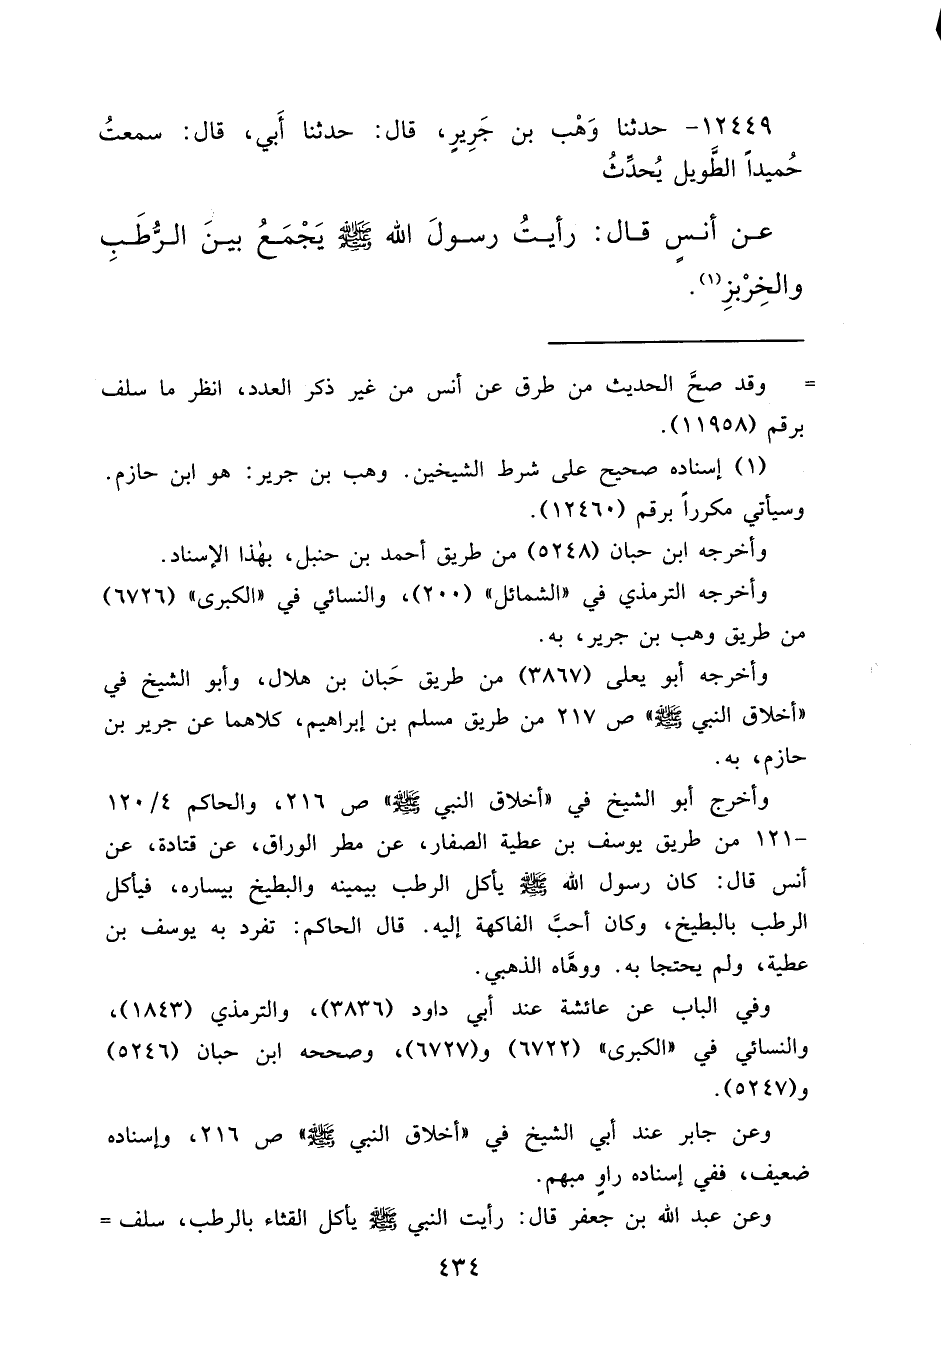 ١٢٤٤٩- حدثنا وَهْب بن جَرِيرٍ، قال: حدثنا أَبي، قال: سمعتُ
حُميداً الطَّويل يُحدِّثُ
عن أنسٍ قال: رأيتُ رسولَ الله ﷺ يَجْمَعُ بينَ الرُّطَبِ
والخِرْبِزِ(١).
= وقد صحَّ الحديث من طرق عن أنس من غير ذكر العدد، انظر ما سلف
برقم (١١٩٥٨).
(١) إسناده صحيح على شرط الشيخين. وهب بن جرير: هو ابن حازم.
وسيأتي مكرراً برقم (١٢٤٦٠).
وأخرجه ابن حبان (٥٢٤٨) من طريق أحمد بن حنبل، بهٰذا الإسناد.
وأخرجه الترمذي في «الشمائل» (٢٠٠)، والنسائي في «الكبرى» (٦٧٢٦)
من طريق وهب بن جرير، به.
وأخرجه أبو يعلى (٣٨٦٧) من طريق حَبان بن هلال، وأبو الشيخ في
«أخلاق النبي ﷺ» ص ٢١٧ من طريق مسلم بن إبراهيم، كلاهما عن جرير بن
حازم، به.
وأخرج أبو الشيخ في «أخلاق النبي ﷺ» ص ٢١٦، والحاكم ١٢٠/٤
-١٢١ من طريق يوسف بن عطية الصفار، عن مطر الوراق، عن قتادة، عن
أنس قال: كان رسول الله ﷺ يأكل الرطب بيمينه والبطيخ بيساره، فيأكل
الرطب بالبطيخ، وكان أحبَّ الفاكهة إليه. قال الحاكم: تفرد به يوسف بن
عطية، ولم يحتجا به. ووهَّاه الذهبي.
وفي الباب عن عائشة عند أبي داود (٣٨٣٦)، والترمذي (١٨٤٣)،
والنسائي في «الكبرى» (٦٧٢٢) و(٦٧٢٧)، وصححه ابن حبان (٥٢٤٦)
و(٥٢٤٧).
وعن جابر عند أبي الشيخ في «أخلاق النبي ﷺ» ص ٢١٦، وإسناده
ضعيف، ففي إسناده راوٍ مبهم.
وعن عبد الله بن جعفر قال: رأيت النبي ﷺ يأكل القثاء بالرطب، سلف =
٤٣٤